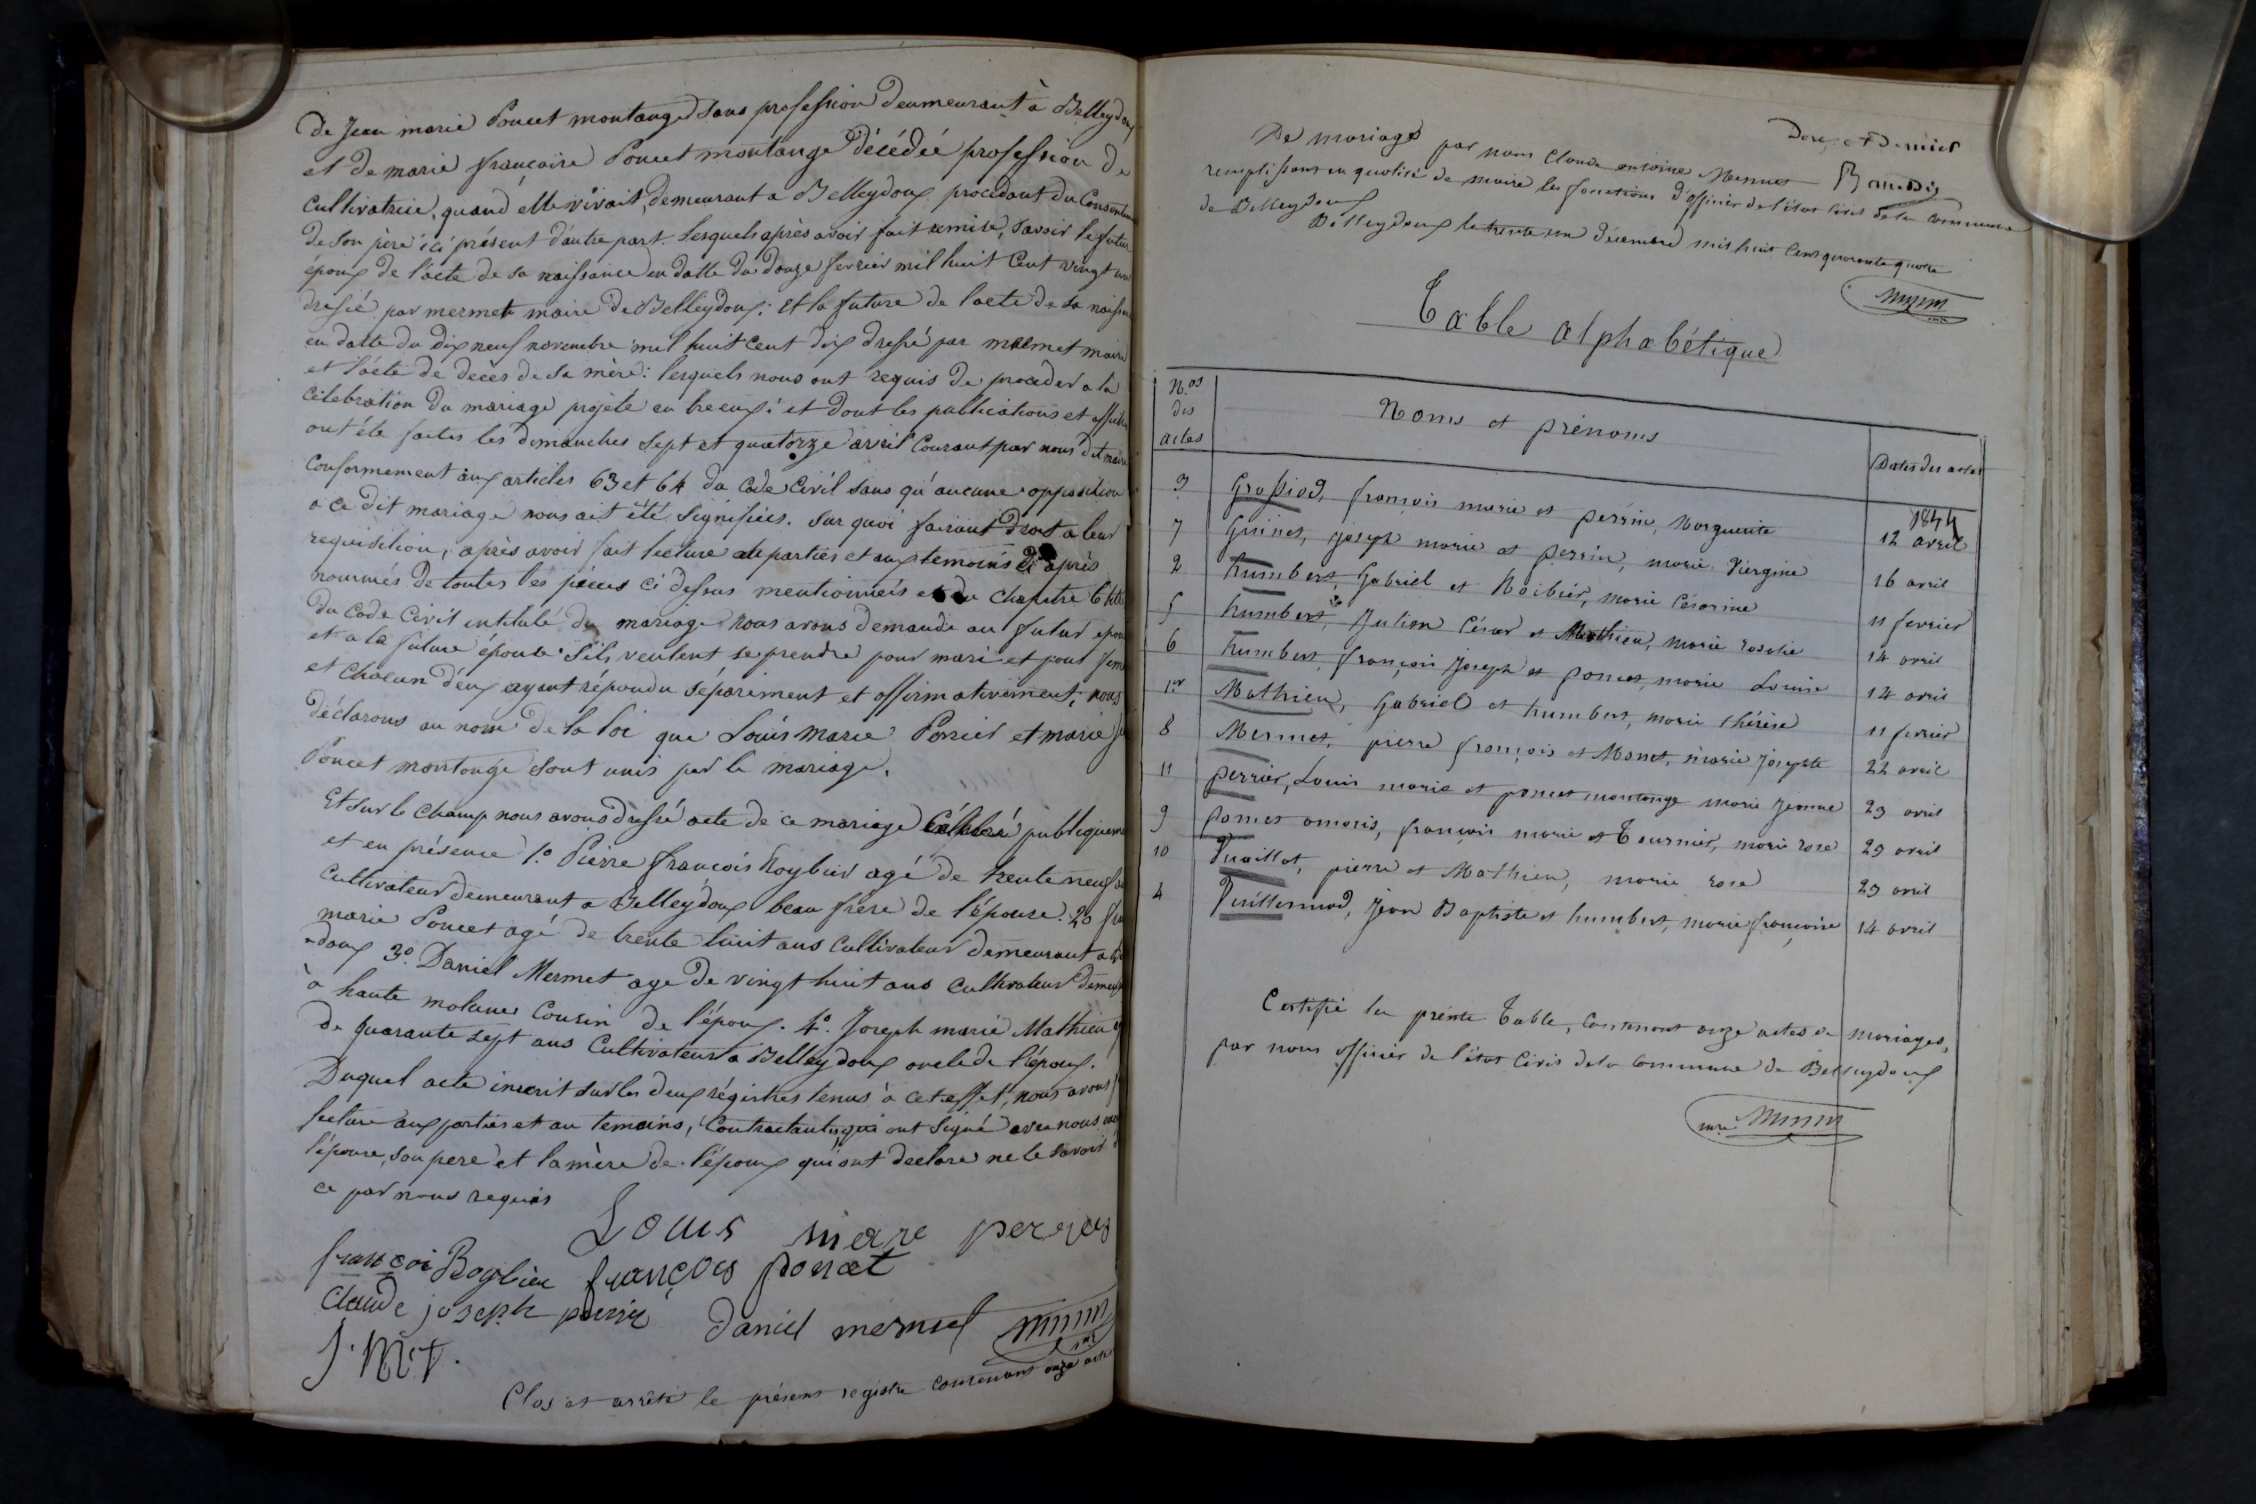 De Jean marie Poncet montange sans profession deumeurant à Belleydoux
et de marie françoise Poncet montange décédée profession de
Cultivatrice, quand elle vivait, demeurant a Belleydoux procédant du Consentem
de Son père ici présent d'autre part. Lesquels après avoir fait remise, Savoir le futur
époux de l'acte de sa naissance en datte du douze fevrier mil huit Cent vingt un
dressé par mermet maire de Belleydoux: et la future de l'acte de sa naissan
en datte du dix neuf novembre mil huit Cent dix dressé par mermet maire
et l'acte de décès de Sa mère: lesquels nous ont requis de procéder a la
Célébration du mariage projeté entre eux: et dont les publications et affiche
ont été faites les dimanches sept et quatorze avril Courant par nous dit maire
Conformement aux articles 63 et 64 du Code Civil sans qu'aucune opposition
a ce dit mariage nous ait été signifiées. Sur quoi faisant droit a leur
requisition, après avoir fait lecture aux parties et aux temoins Ci après
nommés de toutes les pièces ci dessus mentionnées et du chapitre 6
du Code Civil intitulé du mariage nous avons demandé au futur époux
et a la future épouse S'ils veulent se prendre pour mari et pour fem
et chacun d'eux ayant répondu séparément et affirmativement; nous
déclarons au nom de la loi que Louis marie Perrier et marie
Poncet montange sont unis par le mariage.
Et sur le champ nous avons dressé acte de ce mariage Célébré publiquem
et en présence 1.o Pierre françois Roybier agé de trente neuf
Cultivateur demeurant a Belleydoux beau frère de l'épouse. 2o
marie Poncet agé de trente huit ans cultivateur demeurant a
doux 3o. Daniel Mermet age de vingt huit ans cultivateur demeur
à haute molunes Cousin de l'époux. 4o. Joseph marie Mathieu
de quarante sept ans Cultivateur a Belleydoux oncle de l'époux.
Duquel acte inscrit sur les deux régistres tenus à cet effet, nous avons
lecture aux parties et au temoins, Contractants, qui ont Signé avec nous
l'épouse, son pere et la mère de l'époux qui ont declaré ne le Savoir
ce par nous requis
Louis marie perrier
françoi Roybier françois poncet
Claude joseph perrier daniel mermet
J. M. T.
Clos et arrêté le présent registre contenant onze acte
Doux et Dernier
De mariage par nous Claude antoine Mermet
remplissant en qualité de maire les fonctions d'officier de l'état Civil de la Commune
de Belleydoux
Belleydoux le trente un décembre mil huit Cent quarante quatre
Table alphabétique
N.os des actes Noms et prénoms Dates des actes
1844
3 Grossiod, françois marie et perrin, Marguerite 12 avril
7 Guinet, joseph marie et perrin, marie Virgine 16 avril
2 humbert, Gabriel et Roibier, marie Césarine 11 fevrier
5 humbert, Julien César et Mathieu, marie rosalie 14 avril
6 humbert, françois Joseph et poncet, marie Louise 14 avril
1.er Mathieu, Gabriel et humbert, marie thérèse 11 fevrier
8 Mermet, pierre françois et Monet, marie Josephte 22 avril
11 perrier, Louis marie et poncet montange marie Jeanne 29 avril
9 poncet amaris, françois marie et Tournier, marie rose 29 avril
10 Vuaillat, pierre et Mathieu, marie rose 29 avril
4 Vuillermod, Jean Baptiste et humbert, marie françoise 14 avril
Certifié la prente Table, Contenant onze actes de mariages,
par nous officier de l'état Civil de la Commune de Belleydoux